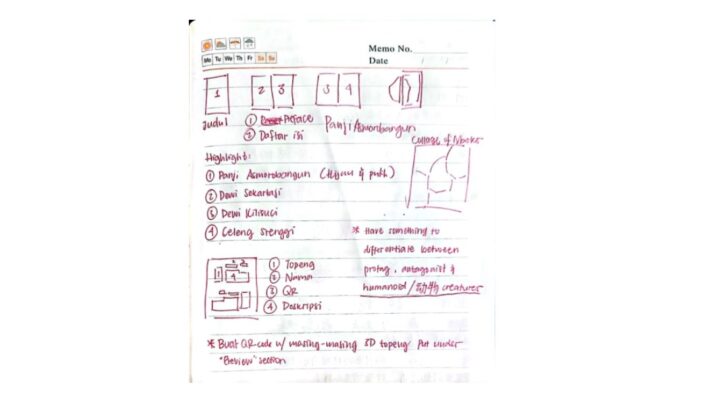 Memo No.
Mo Tu We Th Fr Sa Su
Date / /
1 2 3 3 4
Judul ① Preface Panji Asmorobangun
② Daftar isi
Collage of Masks
Highlight:
① Panji Asmorobangun (Hijau & putih)
② Dewi Sekartaji
③ Dewi Kilisuci
④ Celeng Srenggi
* Have something to
differentiate between
protag, antagonist &
humanoid / 动物 creatures
1 2 3 4
① Topeng
② Nama
③ QR
④ Deskripsi
* Buat QR-code w/ masing-masing 3D topeng Put under
"Preview" section